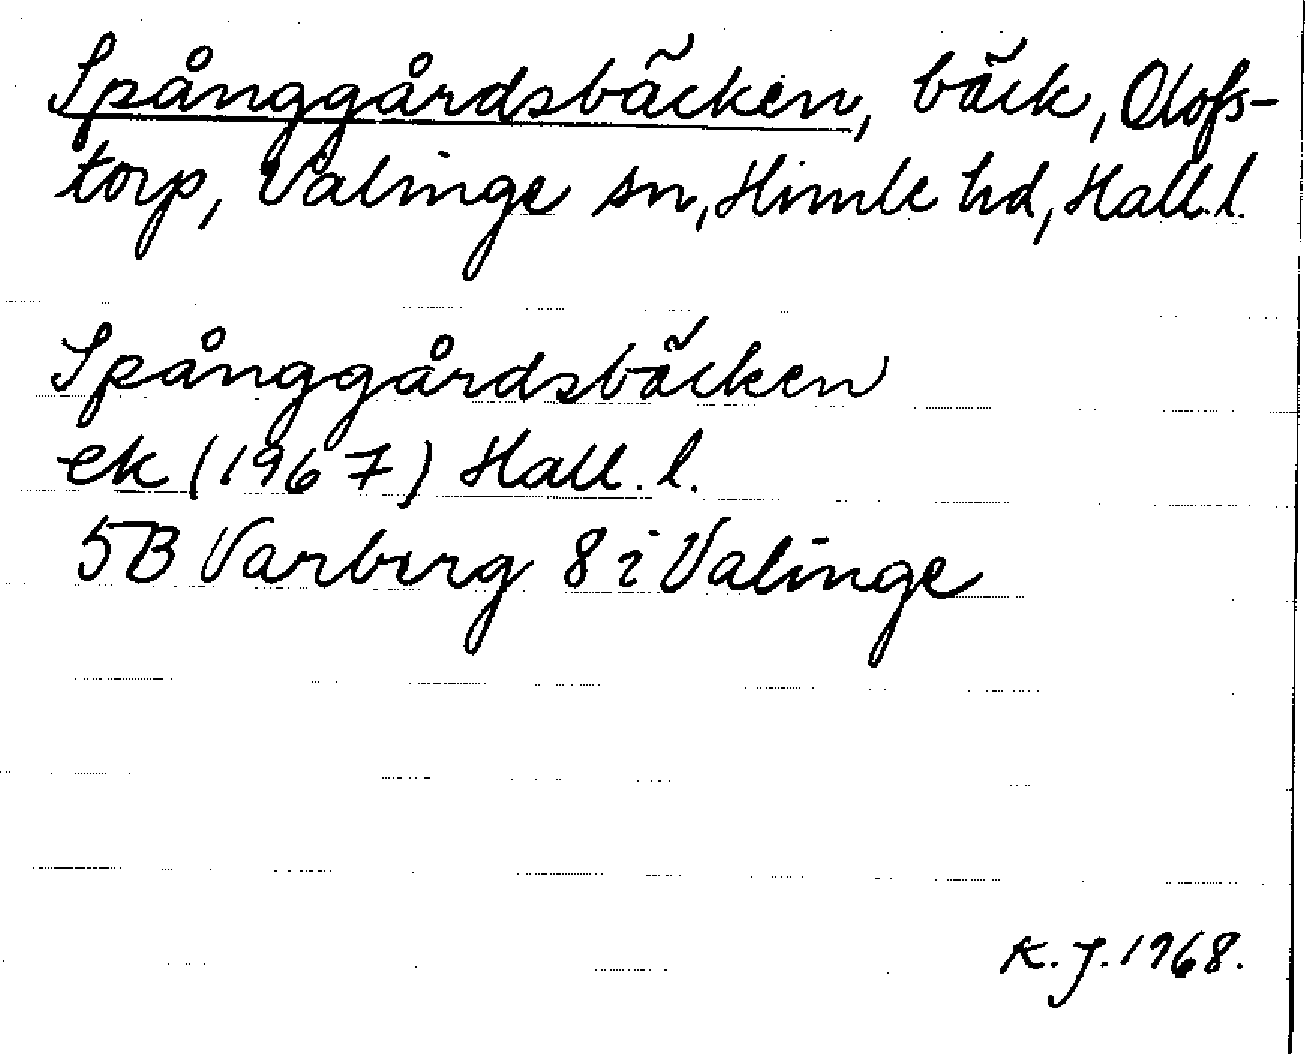 Spånggårdsbäcken, bäck, Olofs-
torp, Valinge sn, Himle hd, Hall.l.
Spånggårdsbäcken
ek (1967) Hall. l.
5B Varberg 8 i Valinge
K. J. 1968.